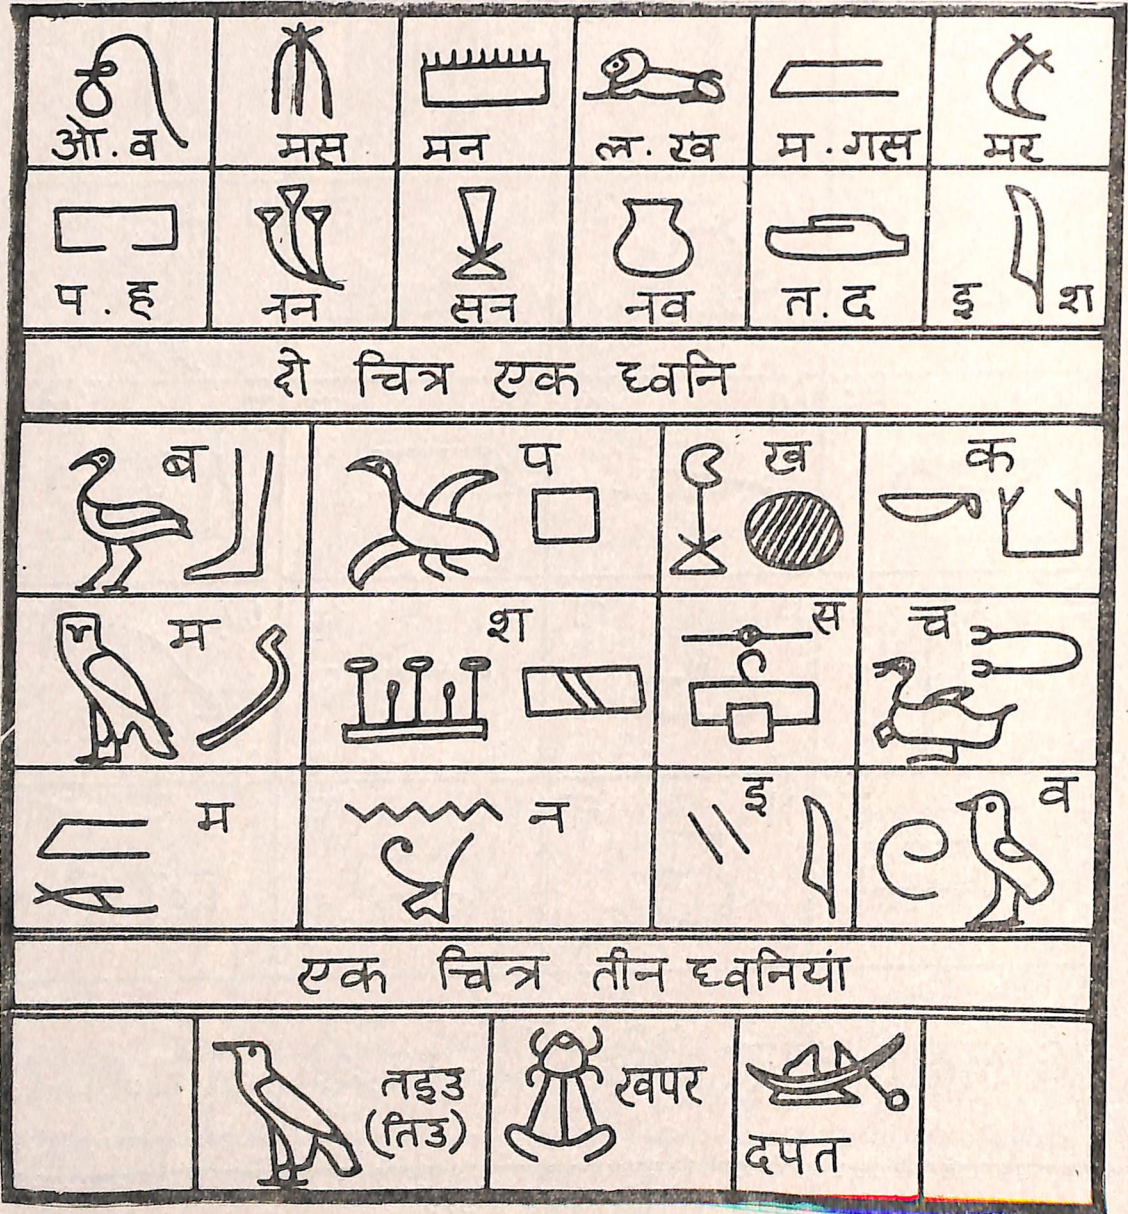 ओ.व मस मन ल.ख म.गस मर
प.ह नन सन नव त.द इ श
दो चित्र एक ध्वनि
ब प ख क
म श स च
म न इ व
एक चित्र तीन ध्वनियां
तइउ खपर
(तिउ) दपत